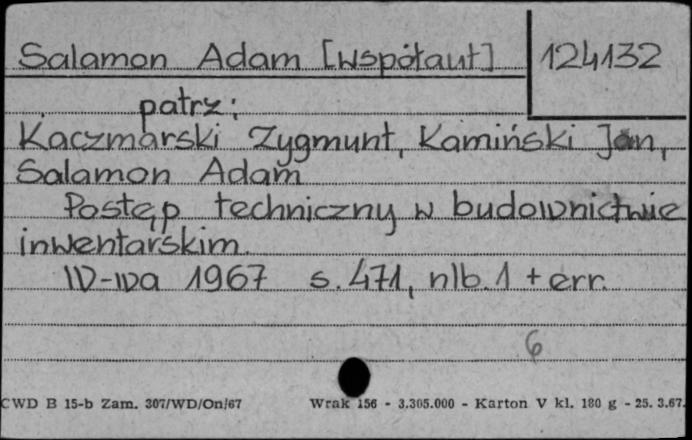 Salamon Adam [współaut] 124132
patrz:
Kaczmarski Zygmunt, Kamiński Jan,
Salamon Adam
Postęp techniczny w budownictwie
inwentarskim.
W-wa 1967 s. 471, nlb. 1 + err.
6
CWD B 15-b Zam. 307/WD/On/67 Wrak 156 - 3.305.000 - Karton V kl. 180 g - 25. 3.67.